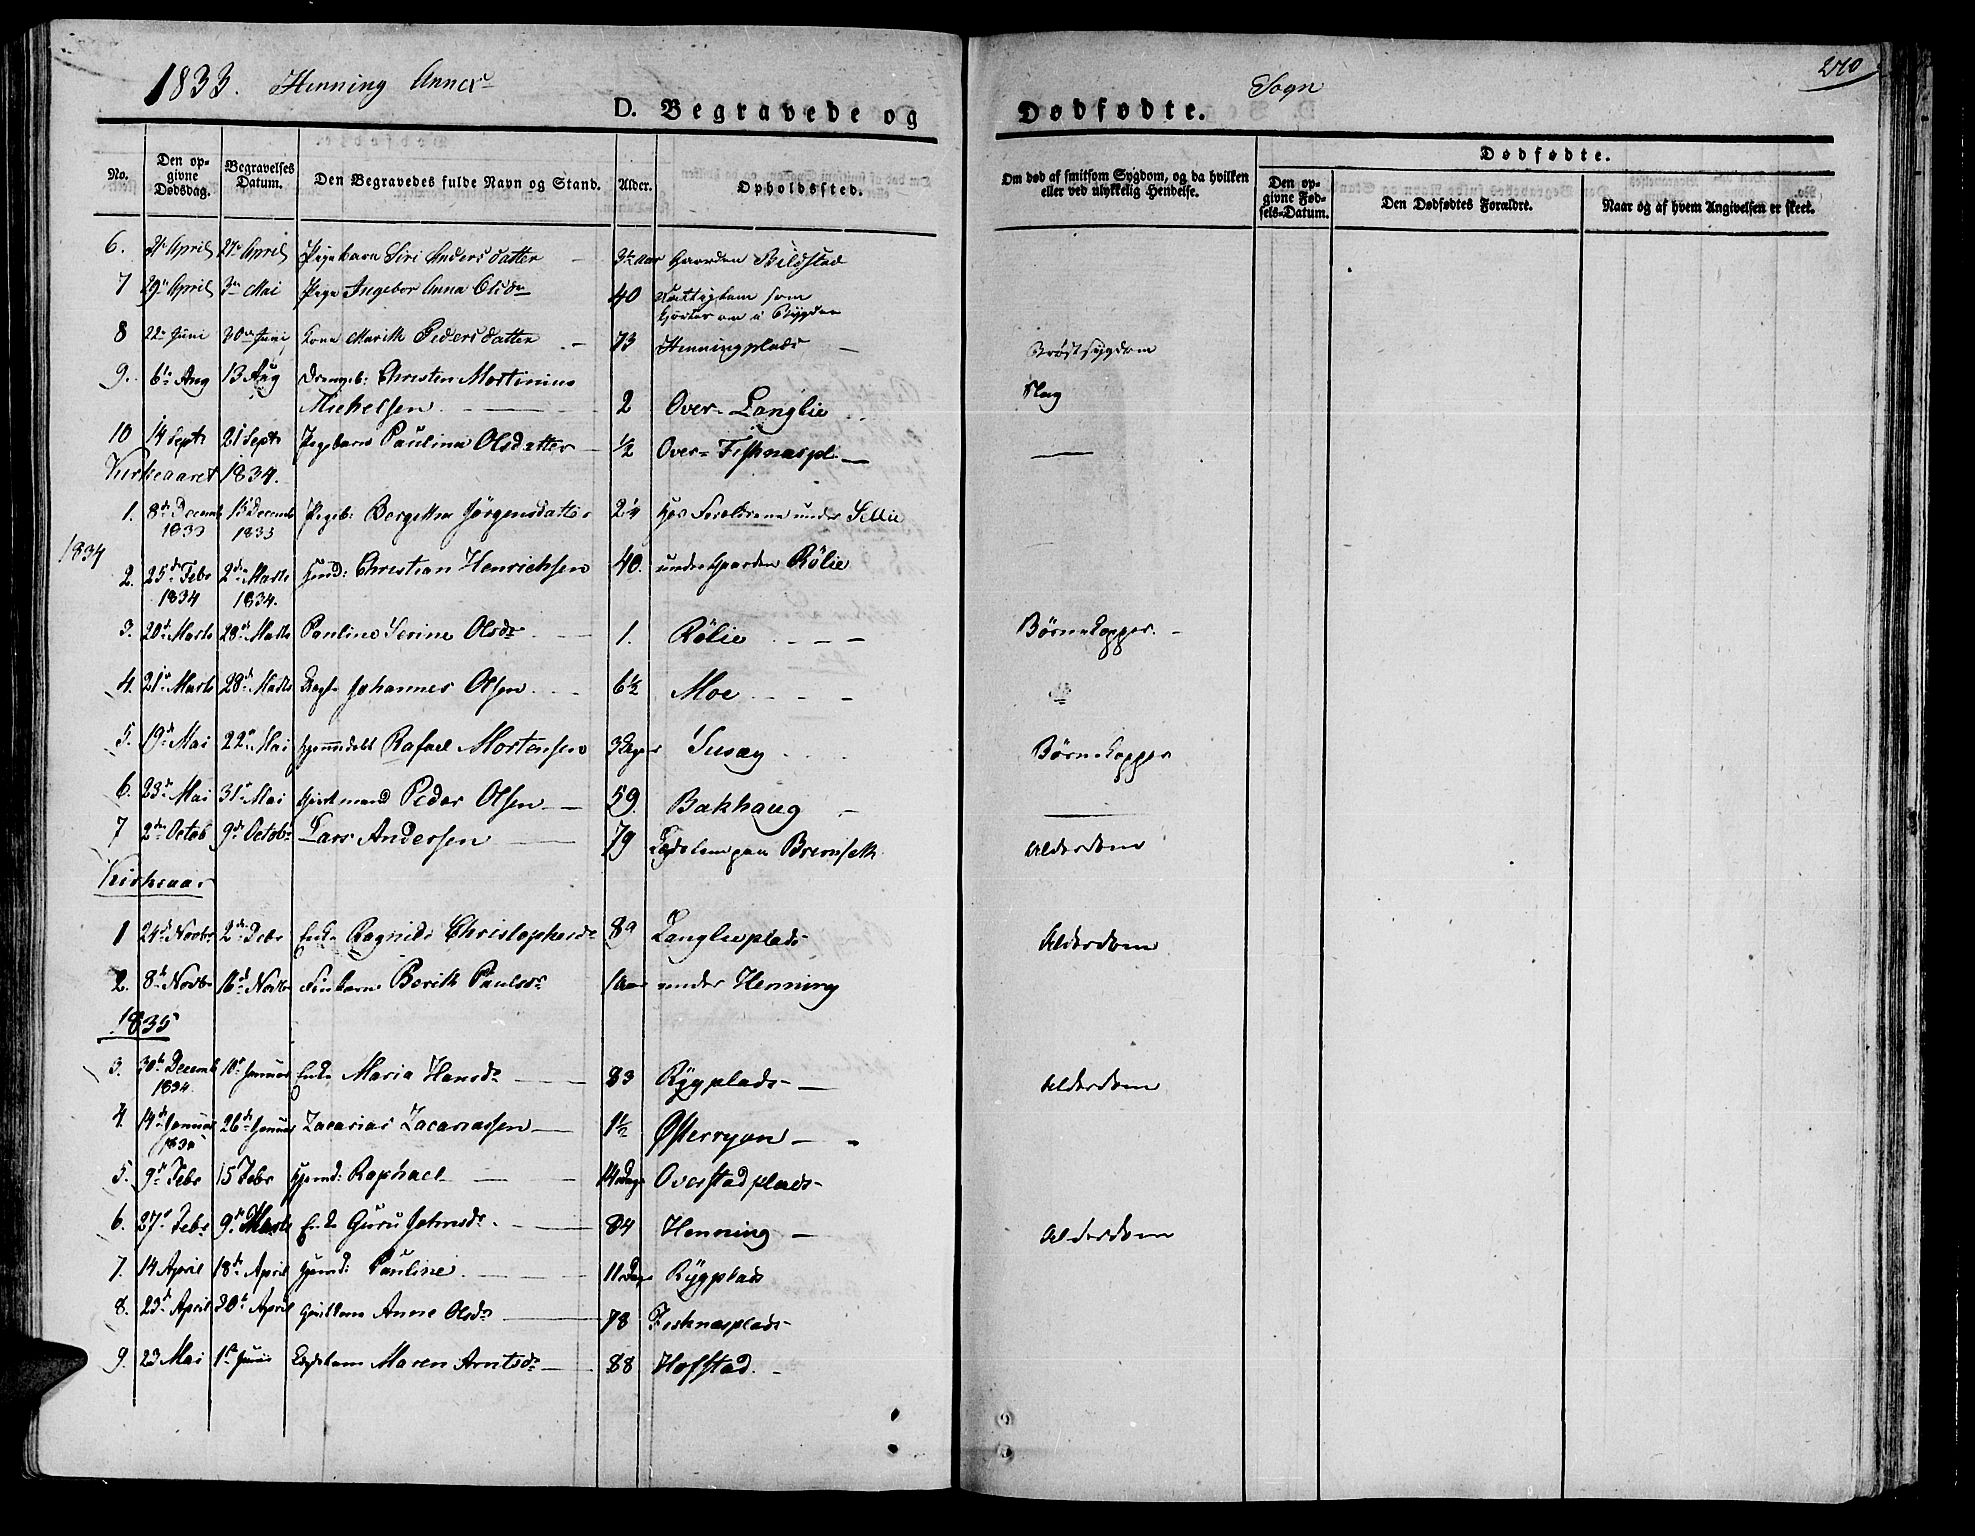 1833. Henning Annex Sogn 270
D. Begravede og Dødfødte.
No. Den opgivne Dødsdag. Begravelses Datum. Den Begravedes fulde Navn og Stand. Alder. Opholdssted. Om død af smitsom Sygdom, og da hvilken eller ved ulykkelig Hendelse. Dødfødte.
Den opgivne Fødsels-Datum. Den Dødfødtes Forældre. Naar og af hvem Angivelsen er skeet.
6. April 27 April Pigebarn Siri Andersdatter Gaarden Bildstad
7 29 April 3 Mai Pige Ingebor Anna Olsdr 40 som
i Bygden
8 22 Juni 30 Juni Kone Marith Pedersdatter 73 Henningplads Brøstsygdom
9. 6te Aug 13 Aug Drengeb: Christen Martinius
Mickelsen 2 Over-Langlie Slag
10 14 Septr 21 Septr Pigebarn Paulina Olsdatter 1/2 Over-Fisknaspl
Kirkeaaret 1834.
1. 8de Decemb 1833 15 Decemb 1833 Pigeb: Jørgensdatter hos Forældrene under
1834
2. 25de Febr 1834 2den Marts 1834. Christian Henrichsen 40. under Gaarden Rølie
3. 20de Marts 28de Marts Pauline Serine Olsdr 1. Rølie Børnekopper.
4. 21 Marts 28de Marts Johannes Olsen 6 1/2 Moe
5. 19de Mai 22 Mai hjemmedøbt Rafael Mortensen 3 Dager Susæg Børnekopper
6. 23de Mai 31 Mai Peder Olsen 59. Bakhaug
7 2den Octob 9de Octobr Lars Andersen 79 Lægdslem paa Bremseth Alderdom
Kirkeaar
1 24de Novbr 2de Debr Enke Ragnild Christophersdr 89 Langlieplads Alderdom
2. 8de Novbr 16de Novbr Berith Paulsdr 1 Aar under Henning
1835
3. 30te Decemb 1834. Januar Enke Maria Hansdr 83 Rygplads Alderdom
4. 14de Januar 1835 26de Januar Zacarias Zacariassen 1 1/2 Østerryan
5. 9de Febr 15 Febr hjemd: Raphael 14 Dage Overstadplads
6. 27 Febr 9de Marts Enke Guru Johnsdr 84 Henning Alderdom
7. 14 April 18de April hjemd: Pauline 11 Dage Rygplads
8. 23de April 30te April Anne Olsdr 78 Fisknasplads
9. 23 Mai 1ste Junii Lægdslem Maren Arntsdr 88 Hofstad